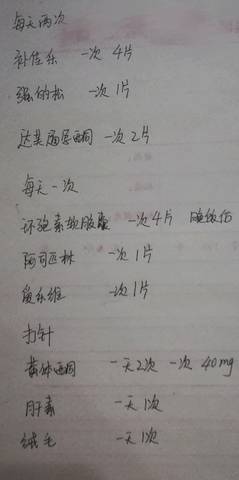 每天两次
补佳乐 一次 4片
强的松 一次 1片
达芙通 一次 2片
每天一次
环孢素软胶囊 一次 4片
阿司匹林 一次 1片
爱乐维 一次 1片
打针
黄体酮 一天2次 一次 40mg
肝素 一天 1次
绒毛 一天 1次